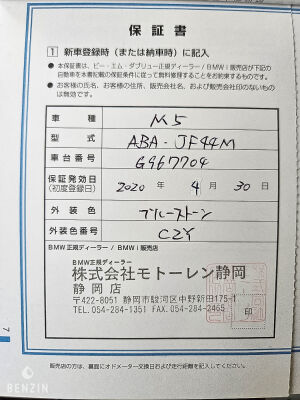 保証書
1 新車登録時（または納車時）に記入
●本保証書は、ビー・エム・ダブリュー正規ディーラー / BMW i 販売店が下記の
自動車を本書記載の保証条件に従って無料修理することをお約束するものです。
●お客様の氏名、お客様の住所、販売会社名、および販売会社印のないもの
は無効です。
車種 M5
型式 ABA-JF44M
車台番号 G967704
保証発効日 2020 年 4 月 30 日
(初度登録日)
外装色 ブルーストーン
外装色番号 C2Y
BMW正規ディーラー / BMW i 販売店
BMW正規ディーラー
株式会社モトーレン静岡
静岡店
〒422-8051 静岡市駿河区中野新田175-1
TEL.054-284-1351 FAX.054-284-2465
印
販売店の方は、裏面にオドメーター交換日および走行距離を記入してください。
7
BENZIN